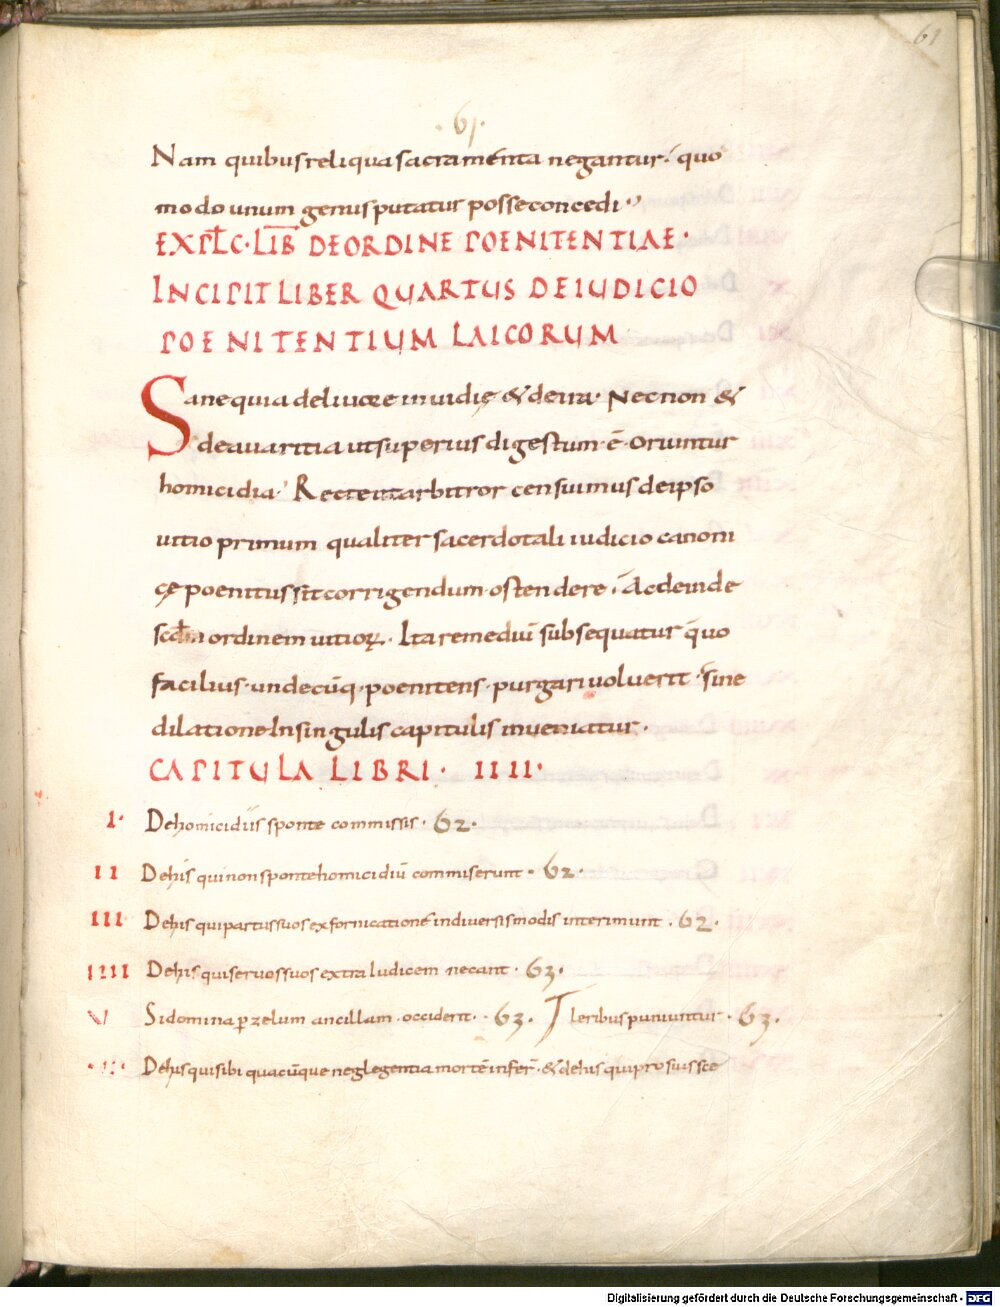 61
61.
Nam quibus reliqua sacramenta negantur. quo
modo unum genus putatur posse concedi
EXPLC. LIB DE ORDINE POENITENTIAE.
INCIPIT LIBER QUARTUS DE IUDICIO
POENITENTIUM LAICORUM
Sane quia de livore invidie & de ira. Necnon &
de avaritia ut superius digestum ē. Oriuntur
homicidia. Recte ut arbitror censuimus de ipso
vitio primum qualiter sacerdotali iudicio canoni
cę poenitus sit corrigendum ostendere. Ac deinde
scdm ordinem vitioꝝ. Ita remediū subsequatur quo
facilius. undecūq. poenitens. purgari voluerit. sine
dilatione In singulis capitulis inveniatur.
CAPITULA LIBRI. IIII.
I. De homicidiis sponte commissis. 62.
II De his qui non sponte homicidiū commiserunt. 62.
III De his qui partus suos ex fornicatione in diversis modis interimunt. 62.
IIII De his qui servos suos extra Iudicem necant. 63.
V Si domina p zelum ancillam. occiderit. 63. leribus puniuntur. 63.
De his qui sibi quacūque neglegentia mortē infer. & de his qui pro suis sce
Digitalisierung gefördert durch die Deutsche Forschungsgemeinschaft - DFG